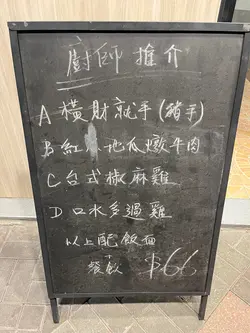 廚師推介
A 橫財就手 (豬手)
B 紅 地瓜燉牛肉
C 台式椒麻雞
D 口水多過雞
以上配飯面
+
餐飲 $66